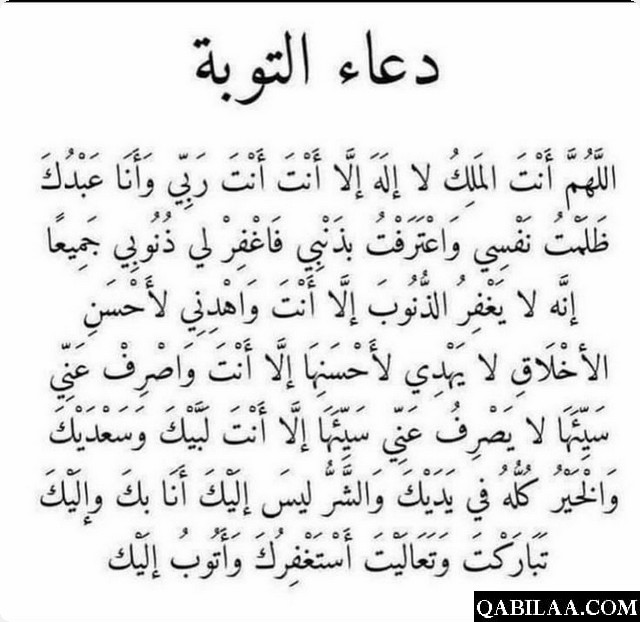 دعاء التوبة
اللَّهُمَّ أَنْتَ المَلِكُ لا إلَهَ إلَّا أَنْتَ أَنْتَ رَبِّي وَأَنَا عَبْدُكَ
ظَلَمْتُ نَفْسِي وَاعْتَرَفْتُ بذَنْبِي فَاغْفِرْ لي ذُنُوبِي جَمِيعًا
إنَّه لا يَغْفِرُ الذُّنُوبَ إلَّا أَنْتَ وَاهْدِنِي لأَحْسَنِ
الأخْلَاقِ لا يَهْدِي لأَحْسَنِهَا إلَّا أَنْتَ وَاصْرِفْ عَنِّي
سَيِّئَهَا لا يَصْرِفُ عَنِّي سَيِّئَهَا إلَّا أَنْتَ لَبَّيْكَ وَسَعْدَيْكَ
وَالْخَيْرُ كُلُّهُ في يَدَيْكَ وَالشَّرُّ ليسَ إلَيْكَ أَنَا بكَ وإلَيْكَ
تَبَارَكْتَ وَتَعَالَيْتَ أَسْتَغْفِرُكَ وَأَتُوبُ إلَيْك
QABILAA.COM